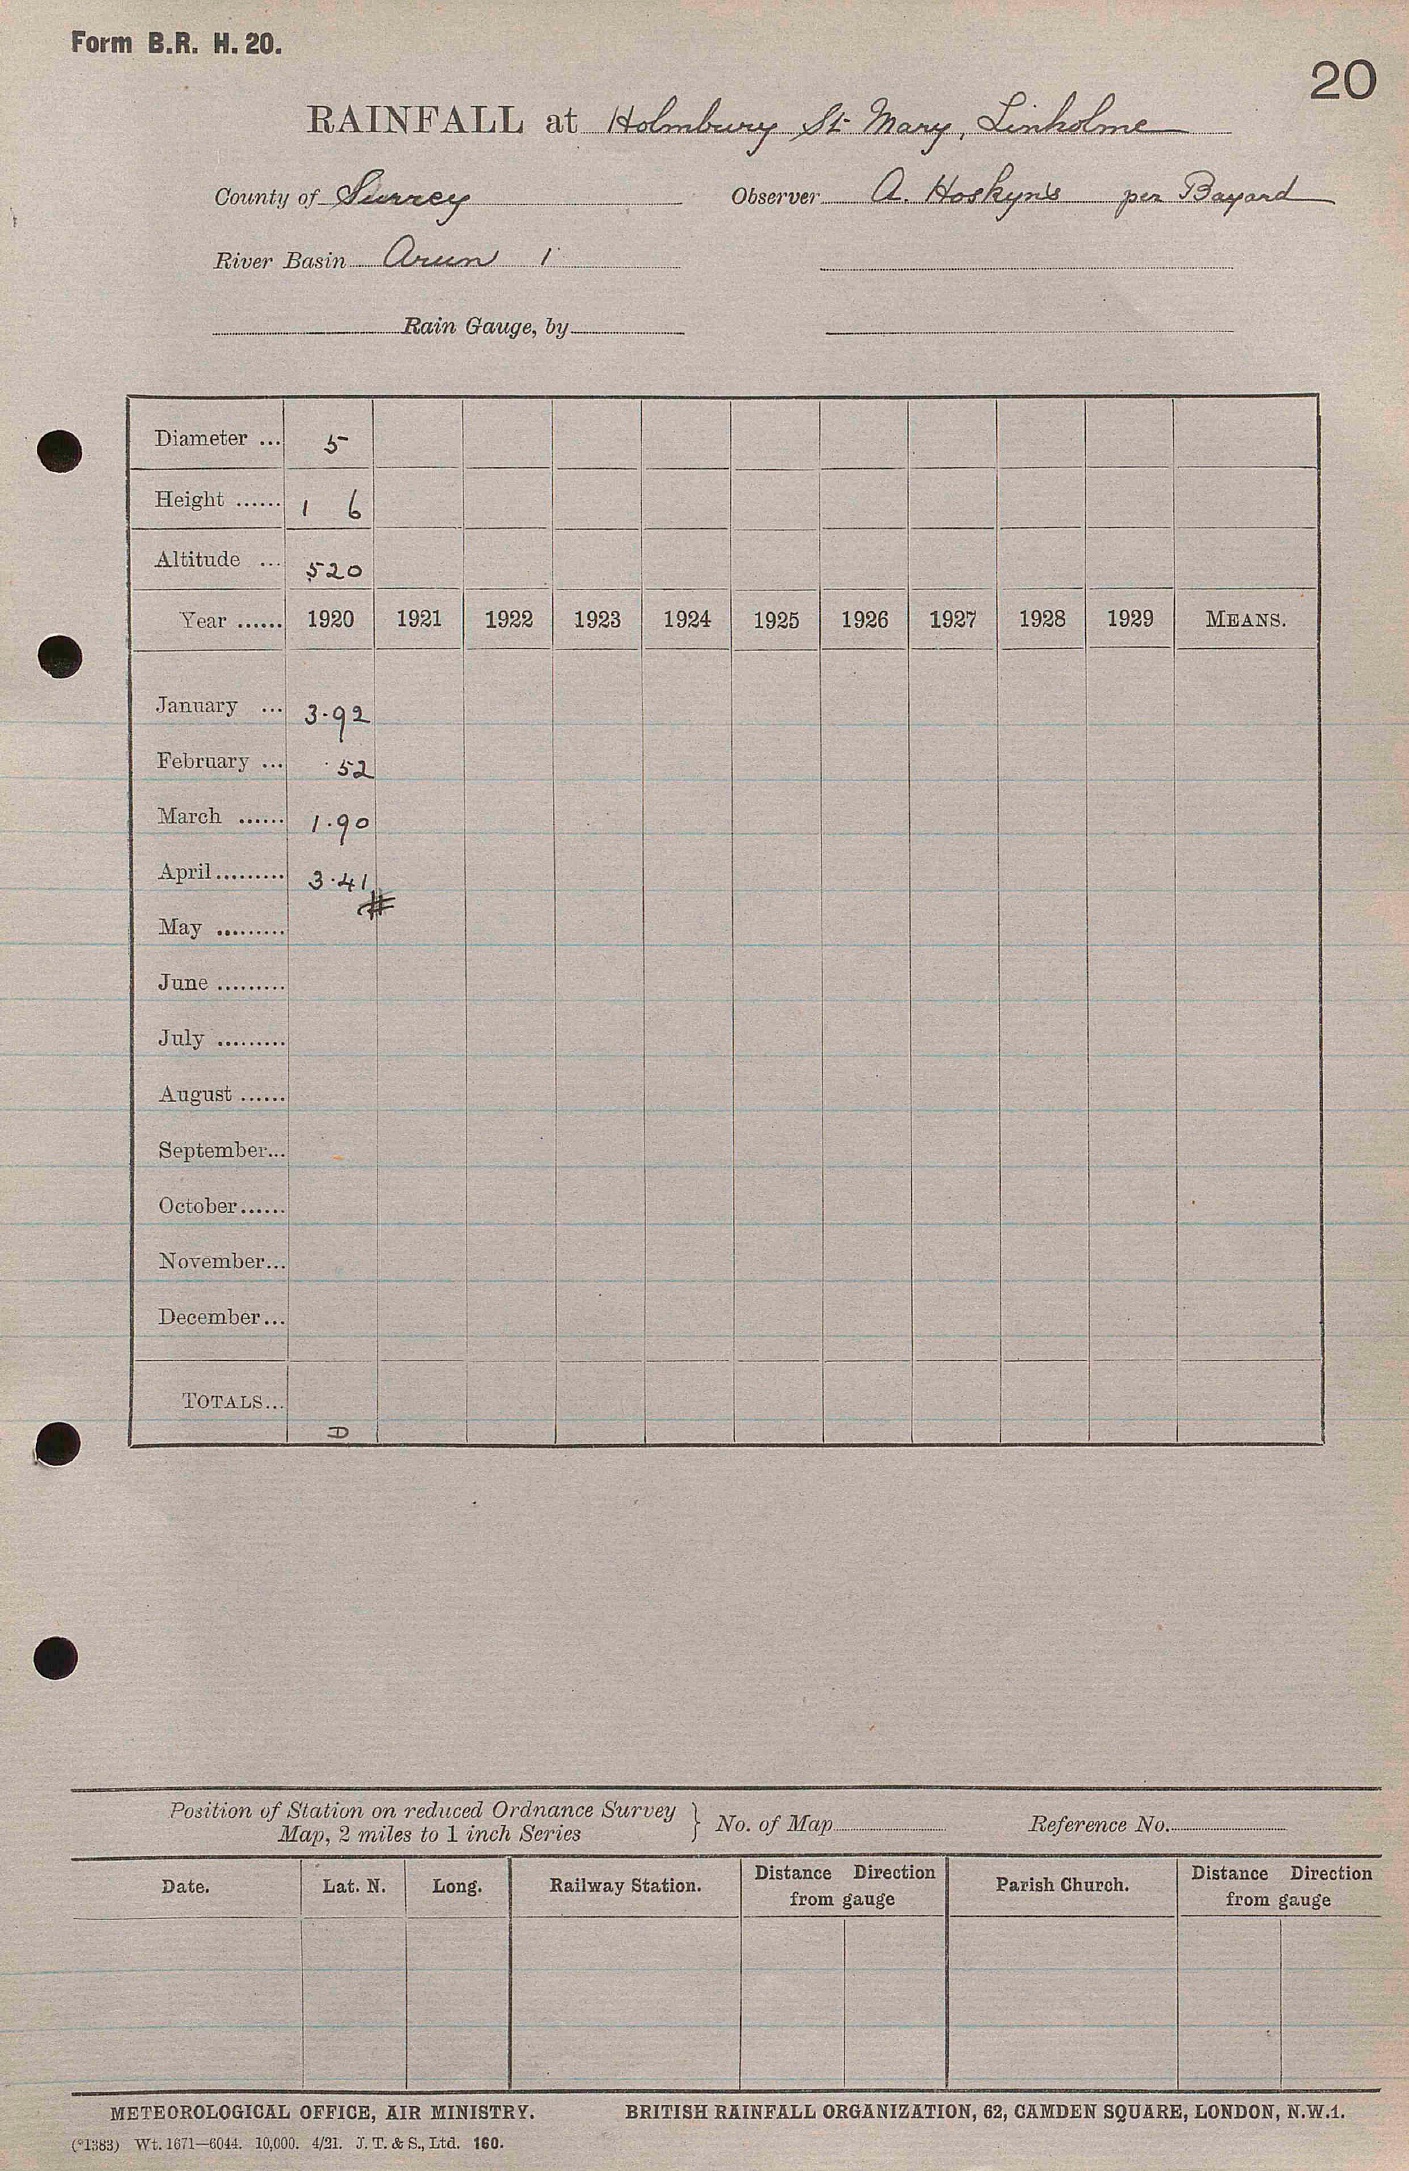 Form B.R. H. 20.
20
RAINFALL at Holmbury St Mary, Linholme
County of Surrey Observer A. Hoskyns per Bayard
River Basin Arun 1
Rain Gauge, by
Diameter ... 5
Height ...... 1 6
Altitude ... 520
Year ...... 1920 1921 1922 1923 1924 1925 1926 1927 1928 1929 MEANS.
January ... 3.92
February ... .52
March ...... 1.90
April......... 3.41
#
May .........
June .........
July .........
August ......
September...
October......
November...
December...
TOTALS...
D
Position of Station on reduced Ordnance Survey
Map, 2 miles to 1 inch Series } No. of Map Reference No.
Date. Lat. N. Long. Railway Station. Distance Direction from gauge Parish Church. Distance Direction from gauge
METEOROLOGICAL OFFICE, AIR MINISTRY. BRITISH RAINFALL ORGANIZATION, 62, CAMDEN SQUARE, LONDON, N.W.1.
(*1383) Wt. 1671—6044. 10,000. 4/21. J. T. & S., Ltd. 160.